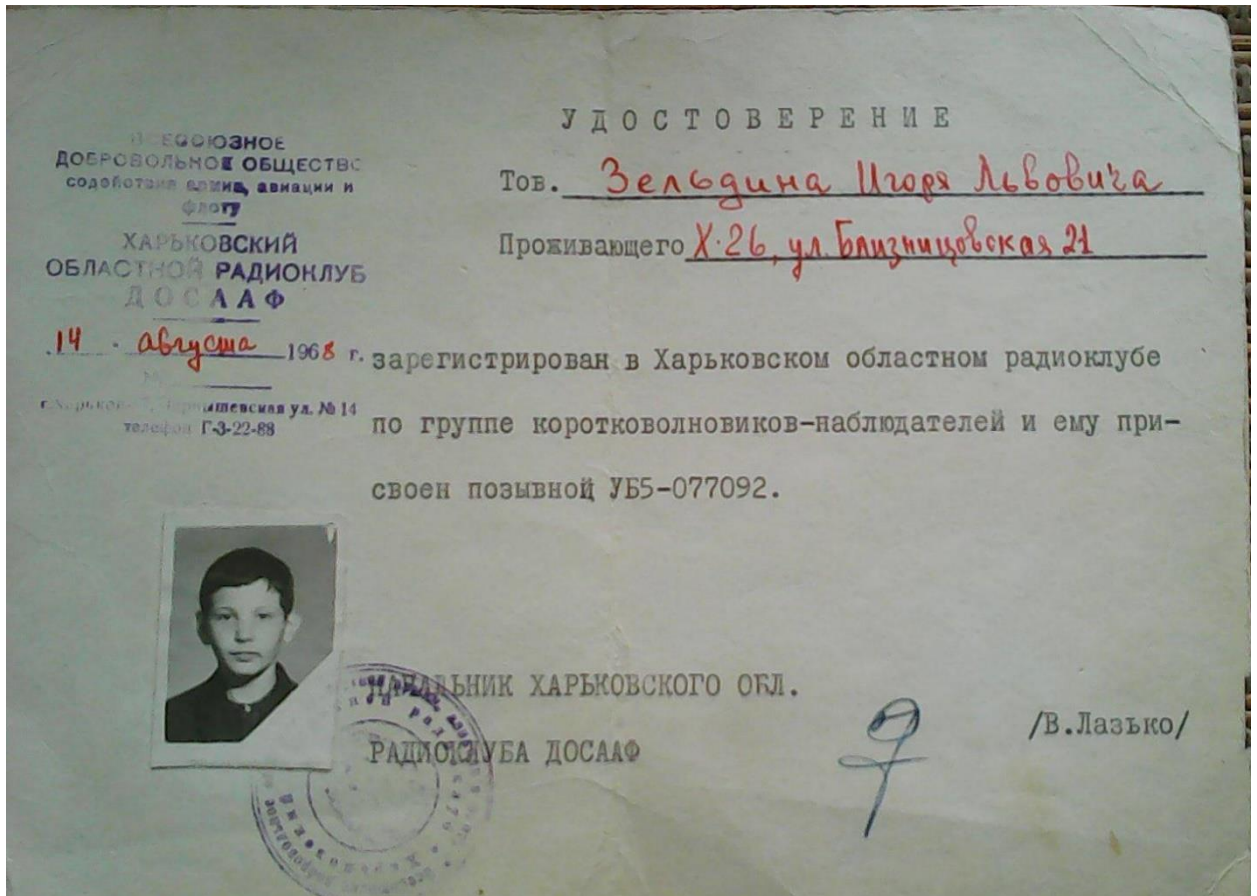 УДОСТОВЕРЕНИЕ
ВСЕСОЮЗНОЕ
ДОБРОВОЛЬНОЕ ОБЩЕСТВО
содействия армии, авиации и
флоту
ХАРЬКОВСКИЙ
ОБЛАСТНОЙ РАДИОКЛУБ
ДОСААФ
14 августа 1968 г.
г. Харьков Чернышевская ул. № 14
телефон Г-3-22-88
Тов. Зельдина Игоря Львовича
Проживающего Х-26, ул. Близницовская 21
зарегистрирован в Харьковском областном радиоклубе
по группе коротковолновиков-наблюдателей и ему при-
своен позывной УБ5-077092.
НАЧАЛЬНИК ХАРЬКОВСКОГО ОБЛ.
РАДИОКЛУБА ДОСААФ
/В.Лазько/